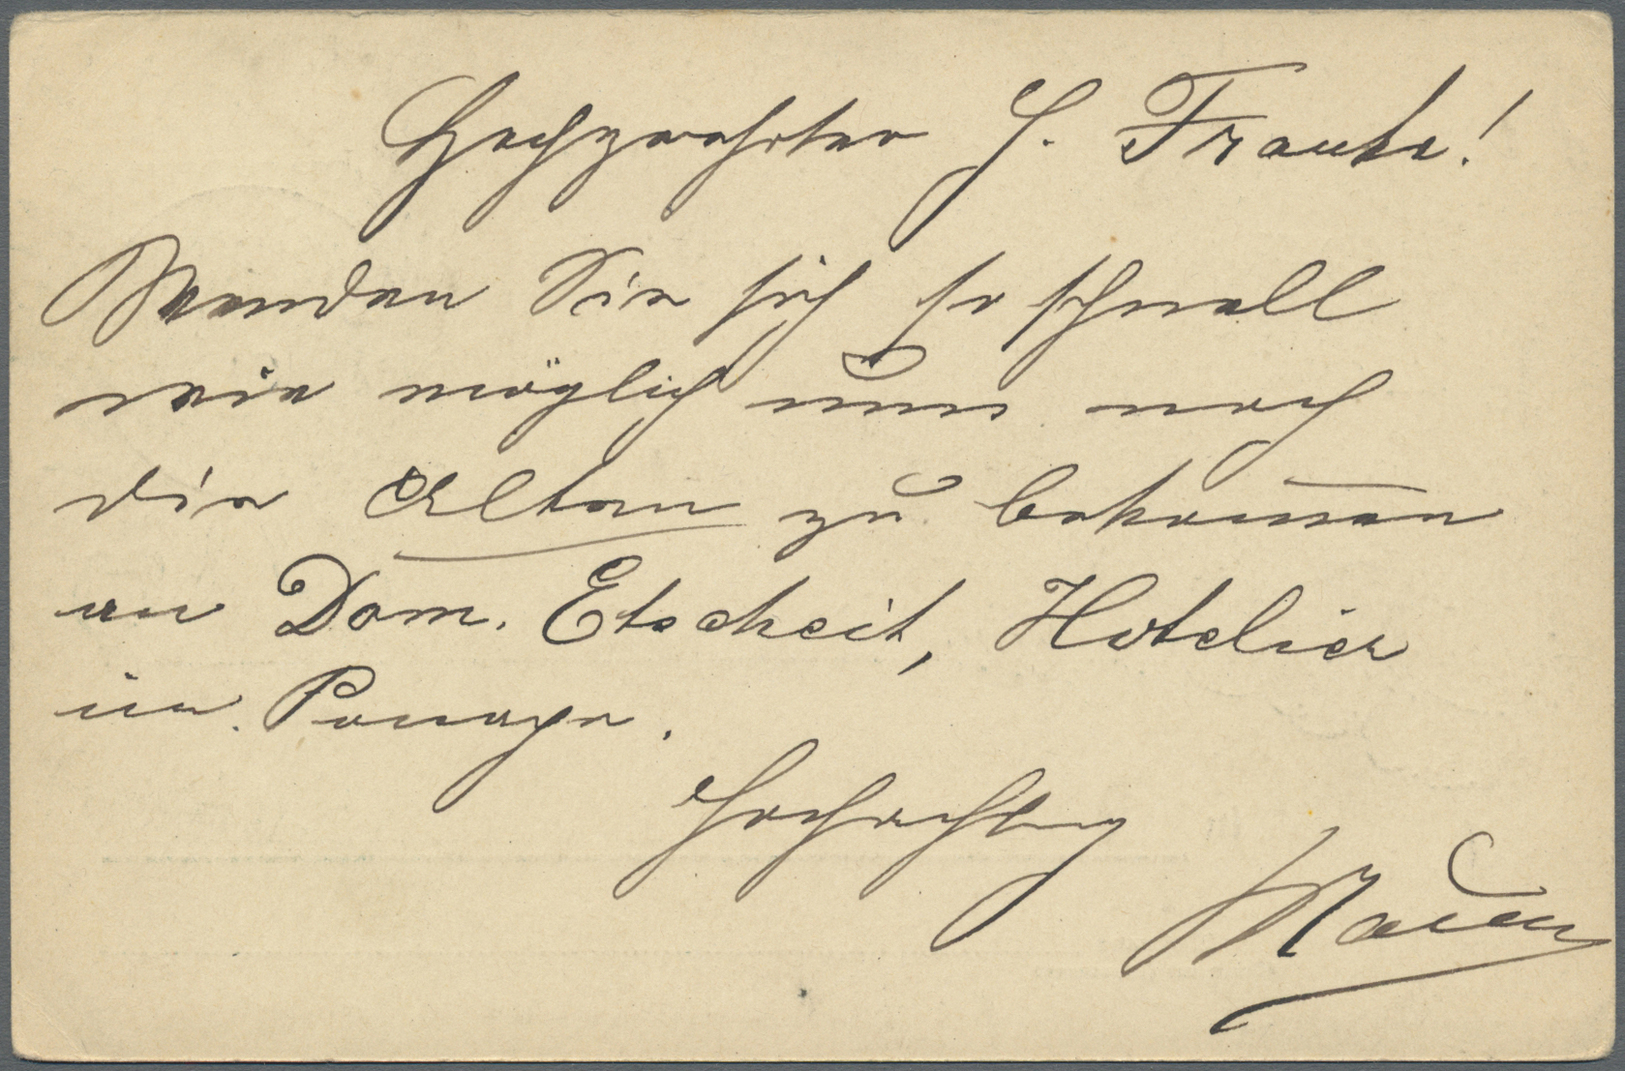 Hochgeehrter H. Franke!
Wenden Sie sich so schnell
wie möglich um noch
die Alten zu bekom̄en
an Dom. Etscheit, Hotelier
in Ponape.
Hochachtung